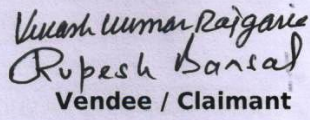 Vikash Kumar Rajgaria
Rupesh Bansal
Vendee / Claimant